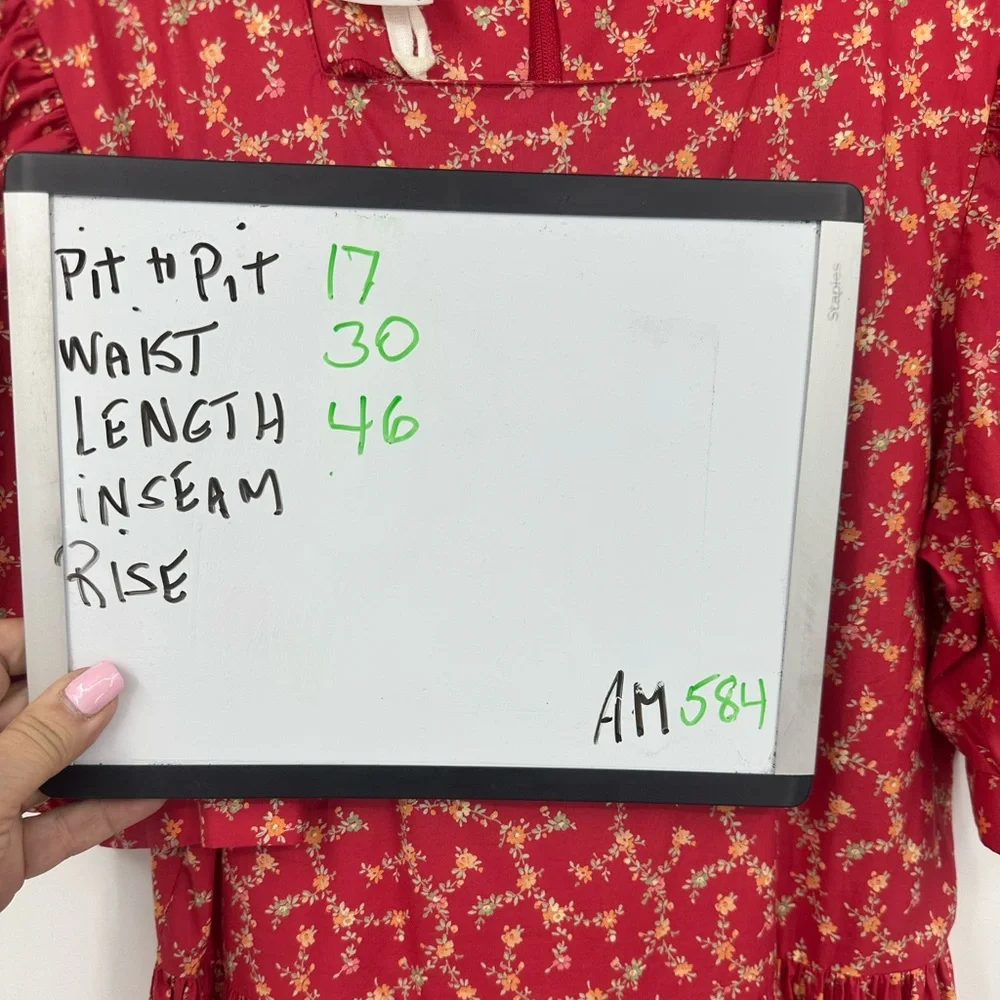 Pit to Pit 17
WAIST 30
LENGTH 46
iNSEAM
RISE
AM584
Staples